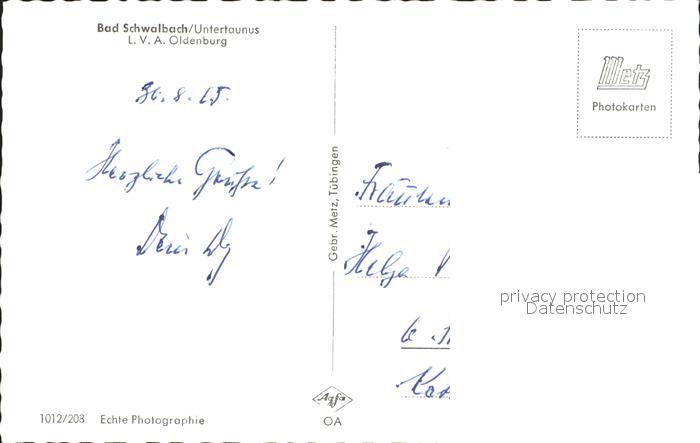 Bad Schwalbach/Untertaunus
L. V. A. Oldenburg
30.8.65.
Herzliche Grüße!
Gebr. Metz, Tübingen
Metz
Photokarten
Fräulein
Helga
6
privacy protection
Datenschutz
Agfa
OA
1012/208 Echte Photographie